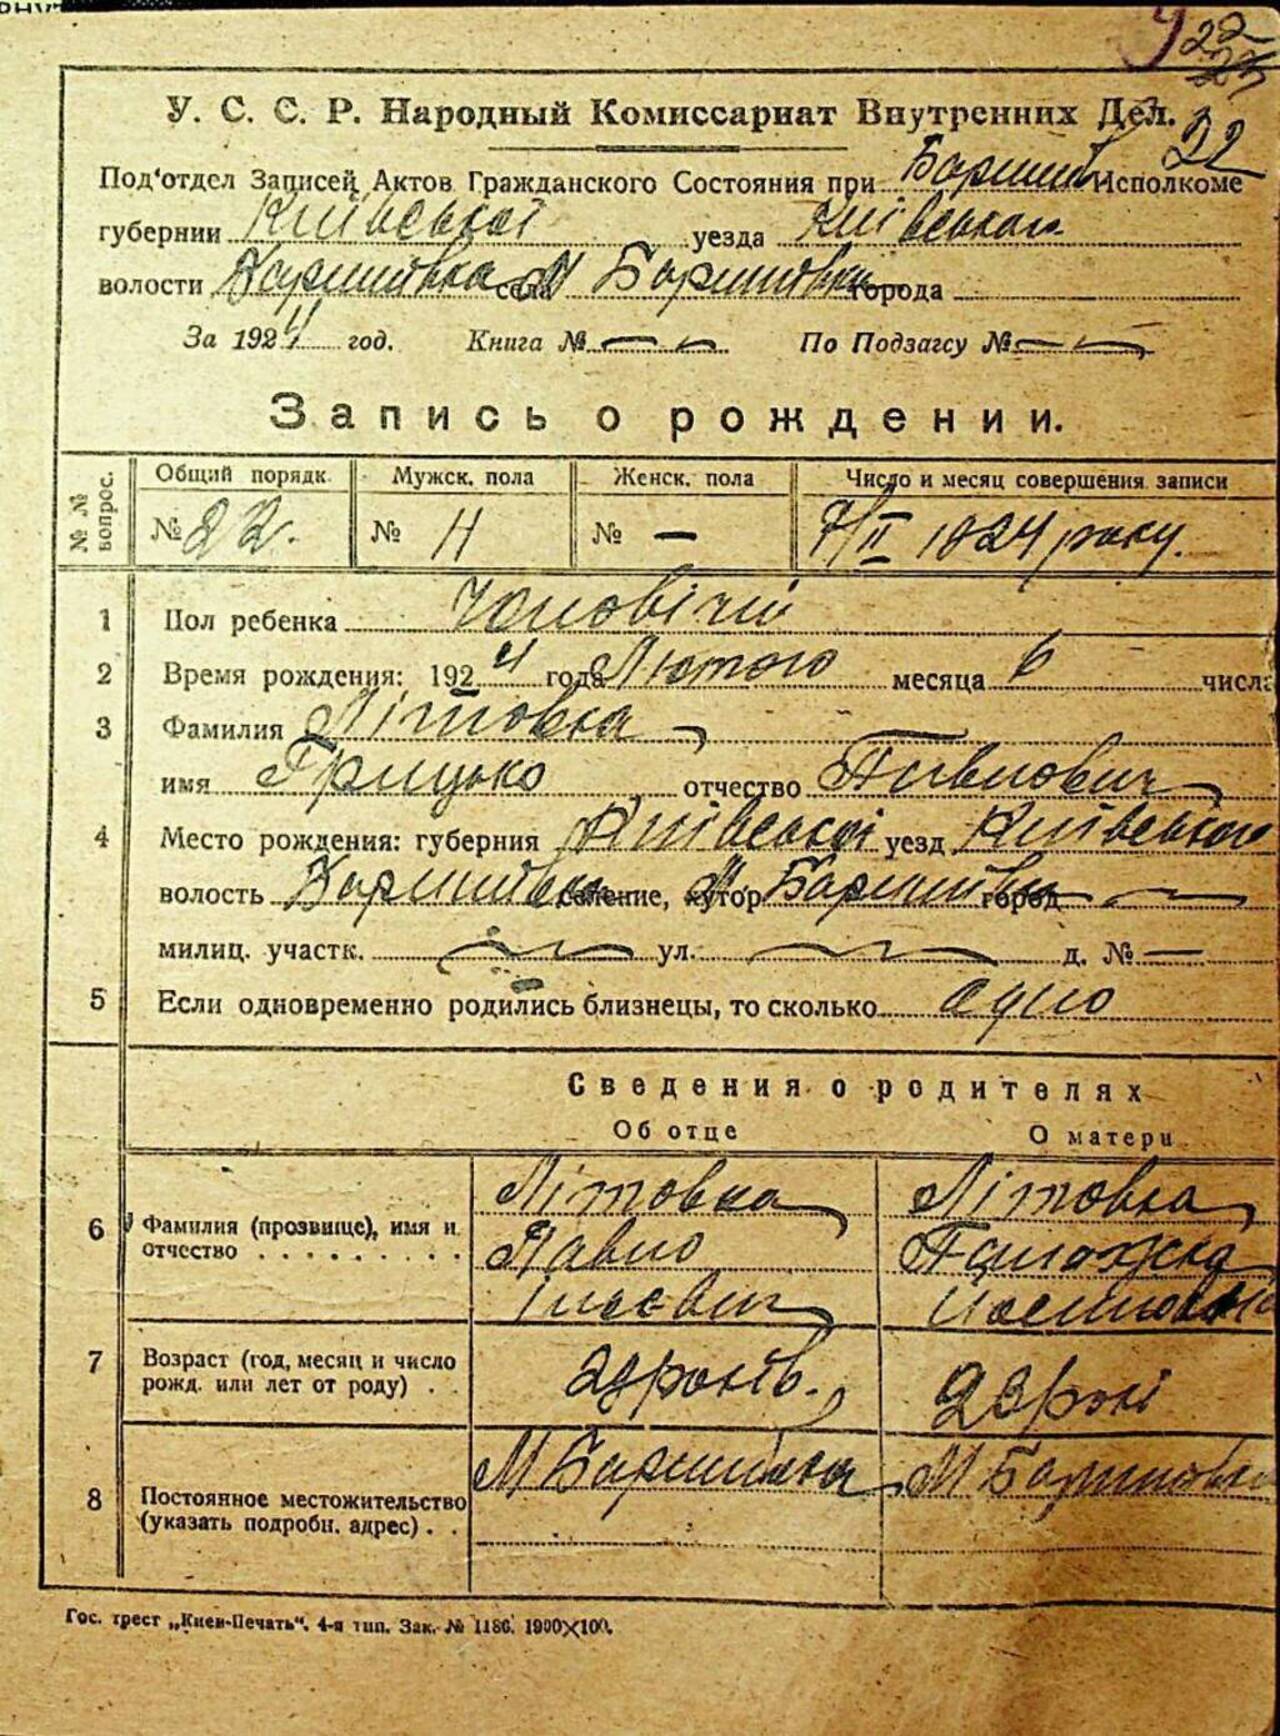 22
32
У. С. С. Р. Народный Комиссариат Внутренних Дел.
Под'отдел Записей Актов Гражданского Состояния при Баришів Исполкоме
губернии Київської уезда Київського
волости Баришівка села М Баришівка города
За 1924 год. Книга № По Подзагсу №
Запись о рождении.
№№ вопрос. Общий порядк. Мужск. пола Женск. пола Число и месяц совершения записи
№ 22. № 11 № — 7/II 1924 року.
1 Пол ребенка Чоловічий
2 Время рождения: 1924 года Лютого месяца 6 числа
3 Фамилия Літовка
имя Грицько отчество Павлович
4 Место рождения: губерния Київської уезд Київського
волость Баришівка селение, хутор М. Баришівка город —
милиц. участк. ул. д. № —
5 Если одновременно родились близнецы, то сколько одно
Сведения о родителях
Об отце О матери
Літовка Літовка
6 Фамилия (прозвище), имя и отчество . . . . . . . . . Павло Палажка
7 Возраст (год, месяц и число рожд. или лет от роду) . . років. 23 рокі
8 Постоянное местожительство (указать подробн. адрес) . . М Баришівка М Баришівка
Гос. трест „Киев-Печать“. 4-я тип. Зак. № 1186. 1900×100.